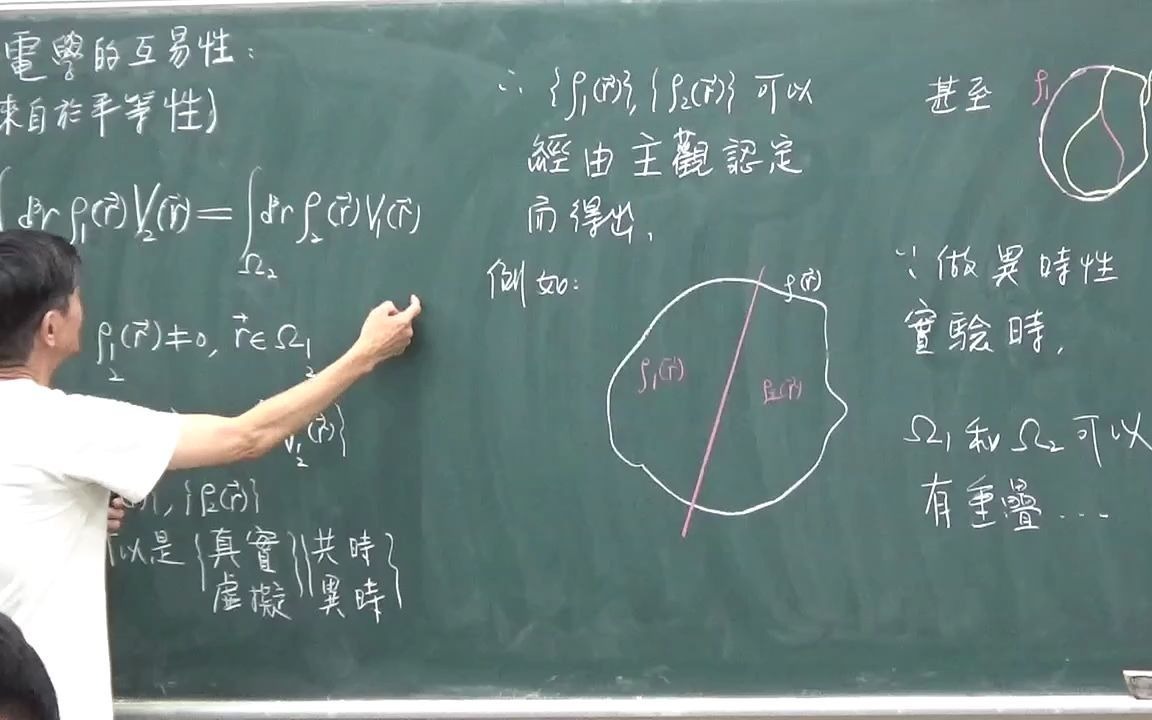 電學的互易性:
來自於平等性)
∫ d³r ρ₁(r⃗) V₂(r⃗) = ∫_Ω₂ d³r ρ₂(r⃗) V₁(r⃗)
ρ₁(r⃗) ≠ 0, r⃗ ∈ Ω₁
2 2
V₁(r⃗)}
2
, {ρ₂(r⃗)}
可以是 {真實 虛擬} {共時 異時}
∴ {ρ₁(r⃗)}, {ρ₂(r⃗)} 可以
經由主觀認定
而得出,
例如:
ρ(r⃗)
ρ₁(r⃗)
ρ₂(r⃗)
甚至
ρ₁
∵ 做異時性
實驗時,
Ω₁ 和 Ω₂ 可以
有重疊...